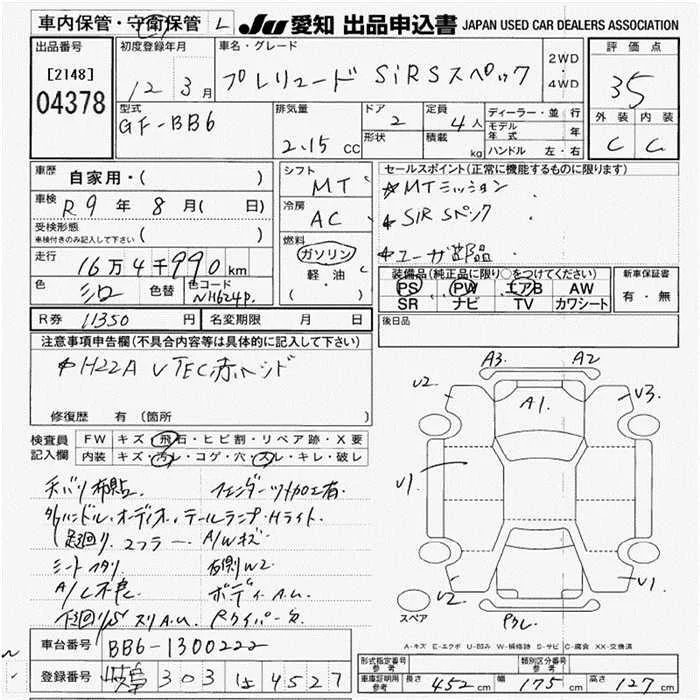 車内保管・守衛保管 L JU 愛知 出品申込書 JAPAN USED CAR DEALERS ASSOCIATION
出品番号
[2148]
04378
初度登録年月
12 3月
車名・グレード
プレリュード SiR Sスペック
2WD
・
4WD
評価点
35
外装 内装
C C
型式
GF-BB6
排気量
2.15 cc
ドア
2
形状
定員
4人
積載
kg
ディーラー・並行
モデル年式 年
ハンドル 左・右
車歴
自家用・( )
車検
R9年 8月( 日)
受検形態
車検付きのみ記入して下さい ( )
走行
16万4千990km
色
シロ
色替
色コード
NH624P.
シフト
MT
冷房
AC
燃料
ガソリン
軽油
( ・ )
セールスポイント(正常に機能するものに限ります)
☆MTミッション
☆SIR Sペック
☆ユーザ部品
装備品(純正品に限り○をつけてください)
PS PW エアB AW
SR ナビ TV カワシート
新車保証書
有・無
R券 11350円
名変期限 月 日
後日品
注意事項申告欄(不具合内容等は具体的に記入して下さい)
☆H22A VTEC赤ヘッド
修復歴 有(箇所 )
検査員
記入欄
FW キズ・飛石・ヒビ割・リペア跡・X要
内装 キズ・汚レ・コゲ・穴・スレ・キレ・破レ
天バリ布貼. フェンダーツメ加工有
外ハンドル・オーディオ・テールランプ・Hライト.
足回り.マフラー. A/Wキズ
シートヘタリ 右側W2
A/C不良 ボディA.U.
下回りサビ スリA.U. Rワイパー欠
A3 A2
U2 U3
A1
U1
U2 U1
スペア
A-キズ E-エクボ U-凹み W-補修跡 S-サビ C-腐食 XX-交換済
車台番号 BB6-1300222
登録番号 303 は 4527
形式指定番号
参考
類別区分番号
参考
車庫証明用
参考
長さ 452cm 幅 175cm 高さ 127cm